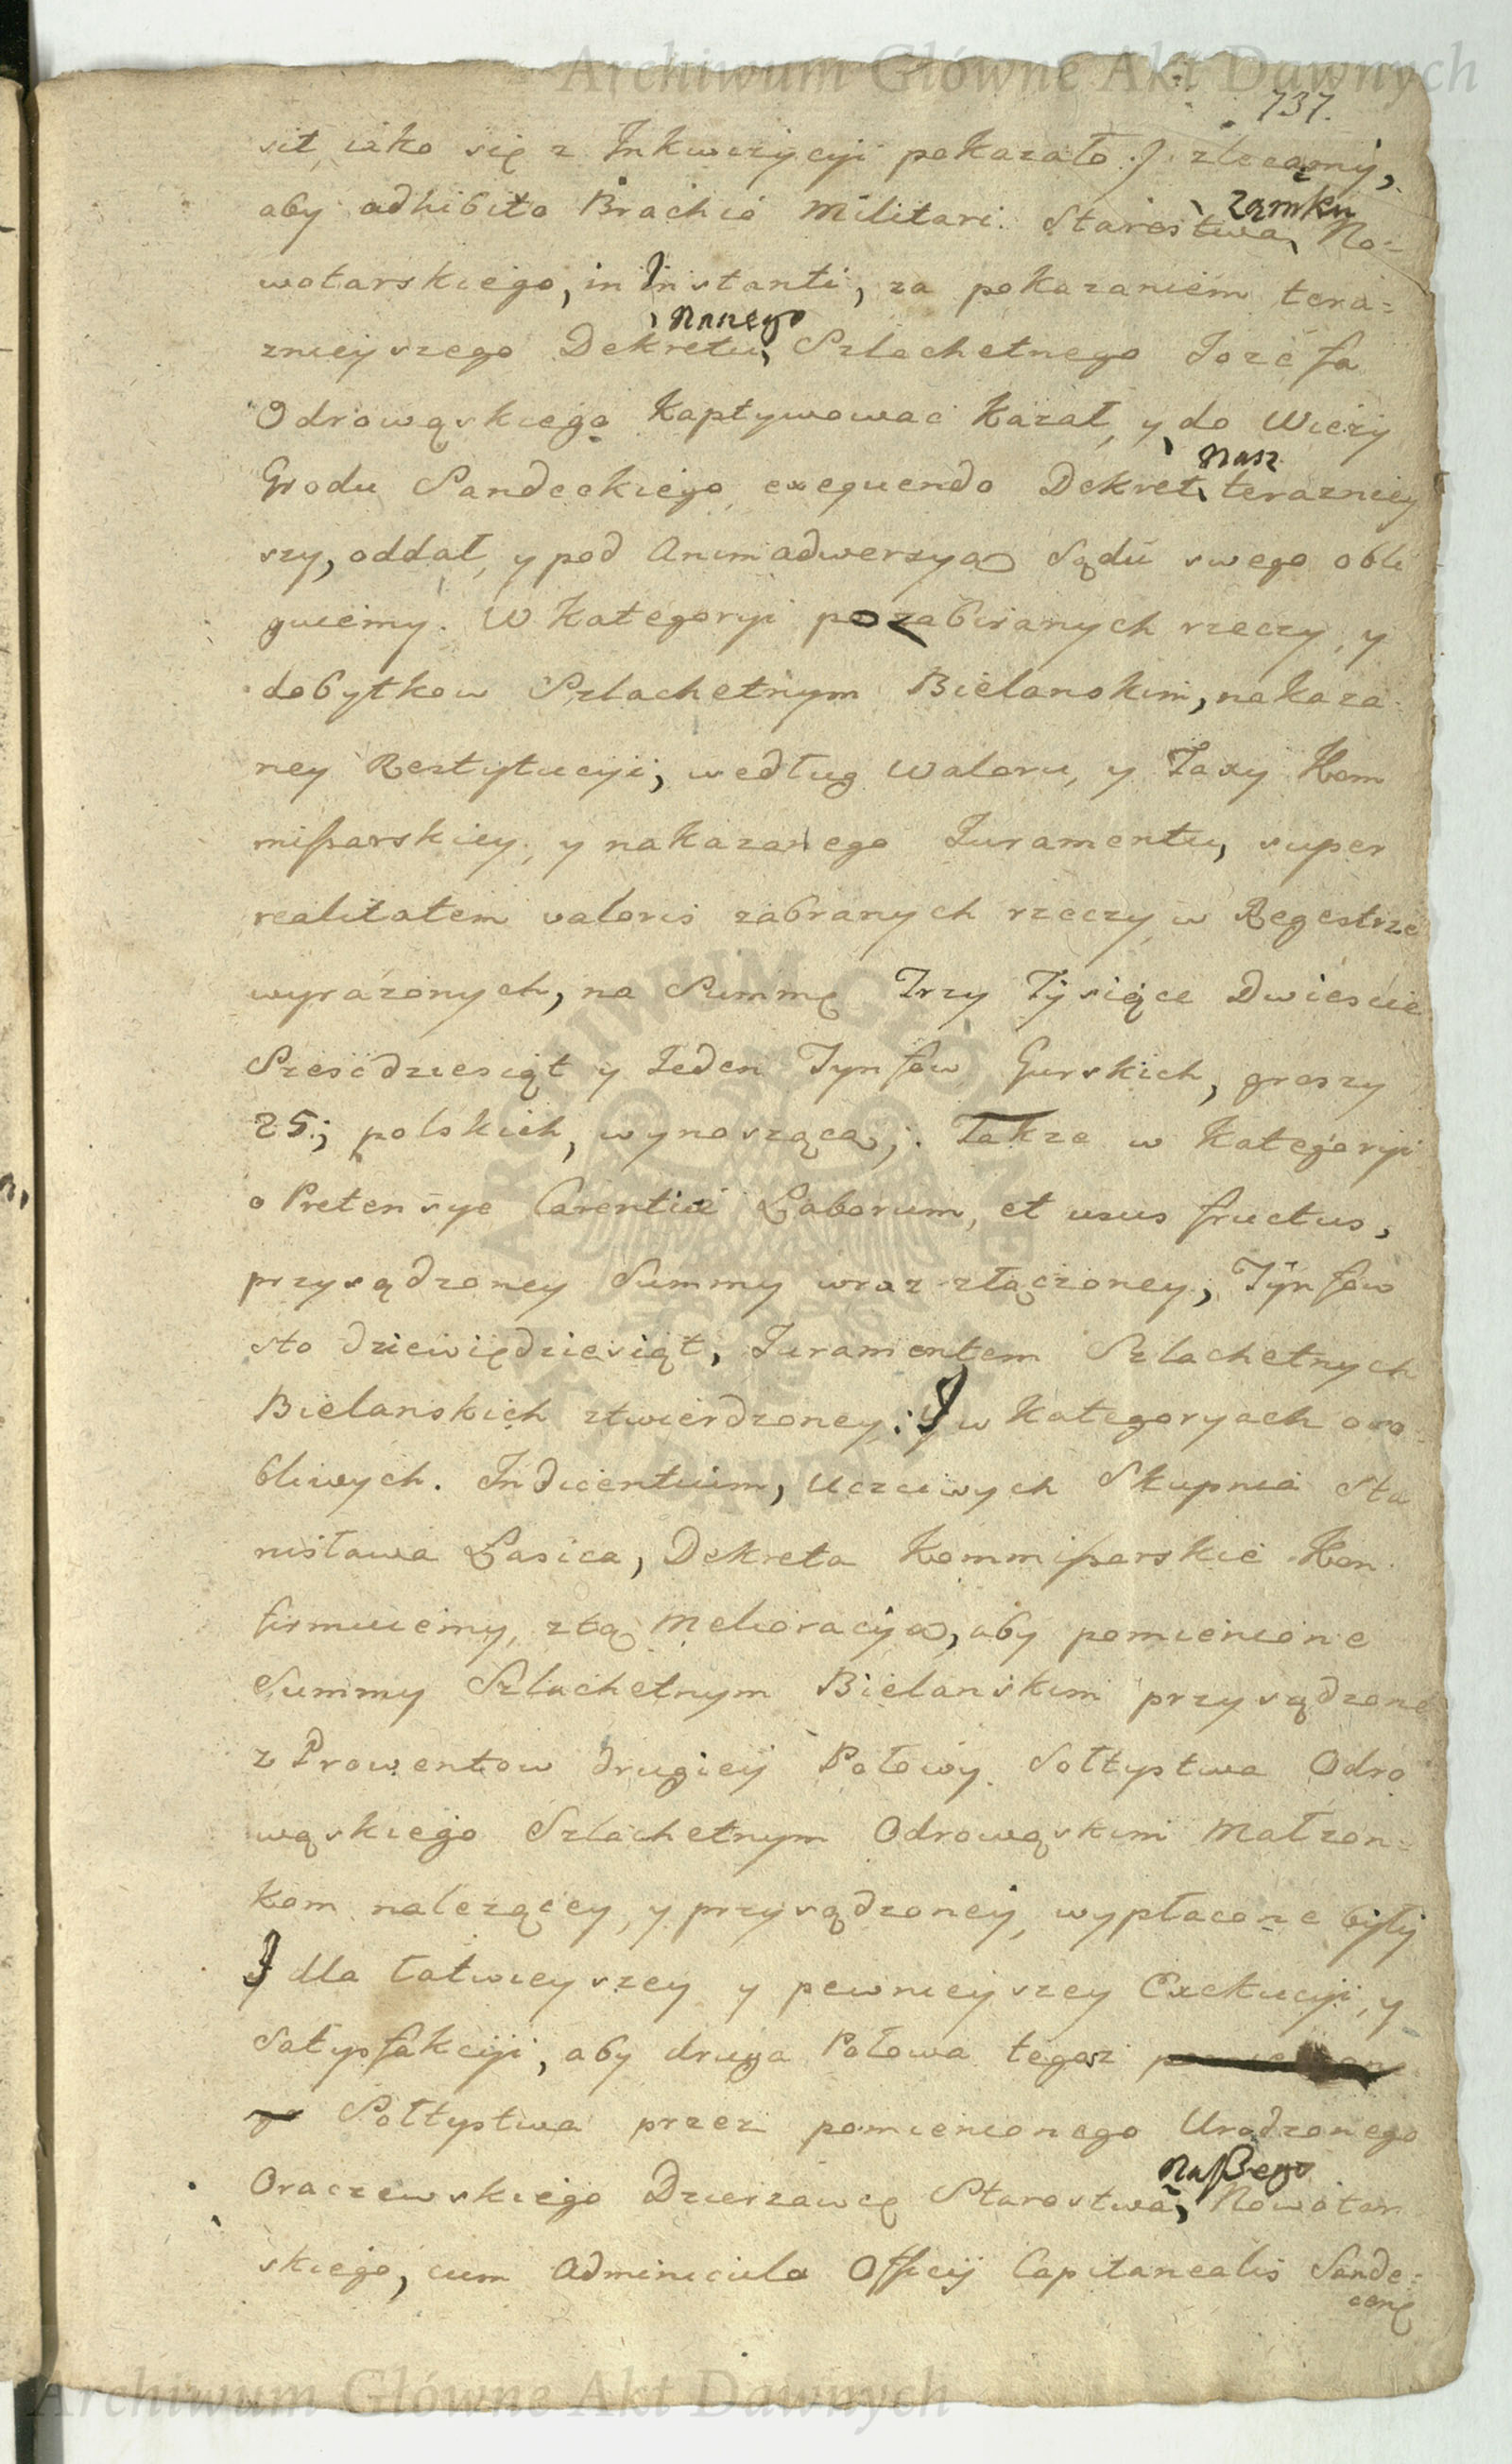 Archiwum Główne Akt Dawnych
737.
sit, iako się z Inkwizycyi pokazało :/: zlecamy,
zamku
aby adhibito Brachio Militari Starostwa, No-
wotarskiego, in Instanti, za pokazaniem tera-
Nanego
znieyszego Dekretu, Szlachetnego Jozefa
Odrowąskiego kaptywować kazał, y do Wieży
Nasz
Grodu Sandeckiego, exequendo Dekret, terazniey
szy, oddał, y pod Animadwersyą Sądu swego obli
guiemy. W kategoryi pozabiranych rzeczy, y
dobytkow Szlachetnym Bielanskim, nakaza
ney Restytucyi, według Waloru, y Taxy Kom
mißarskiey, y nakazanego Juramentu, super
realitatem valoris zabranych rzeczy w Regestrze
wyrażonych, na Summę Trzy Tysiące Dwieście
Sześćdziesiąt y Jeden Tynfow Gurskich, groszy
25; polskich, wynoszącą; Takze w kategoryi
o Pretensye Carentiæ Laborum, et usus fructus,
przysądzoney Summy wraz złączoney, Tynfow
sto dziewiędziesiąt, Juramentem Szlachetnych
Bielanskich ztwierdzoney: J w kategoryach oso
bliwych. Indicentium, Uczciwych Skupnia Sta
nisława Łasica, Dekreta Kommißarskie Kon
firmuiemy, z tą Melioracyą, aby pomienione
Summy Szlachetnym Bielanskim przysądzone
z Prowentow drugiey Połowy Sołtystwa Odro
wąskiego Szlachetnym Odrowąskim Małzon-
kom nalezącey, y przysądzoney, wypłacone były
J dla łatwieyszey y pewnieyszey Exekucyi, y
Satysfakcyi, aby druga Połowa tegoz
go Sołtystwa przez pomienionego Urodzonego
Naßego
Oraczewskiego Dzierzawcę Starostwa, Nowotar
skiego, cum Adminiculo Officij Capitanealis Sande-
cenę
Archiwum Główne Akt Dawnych